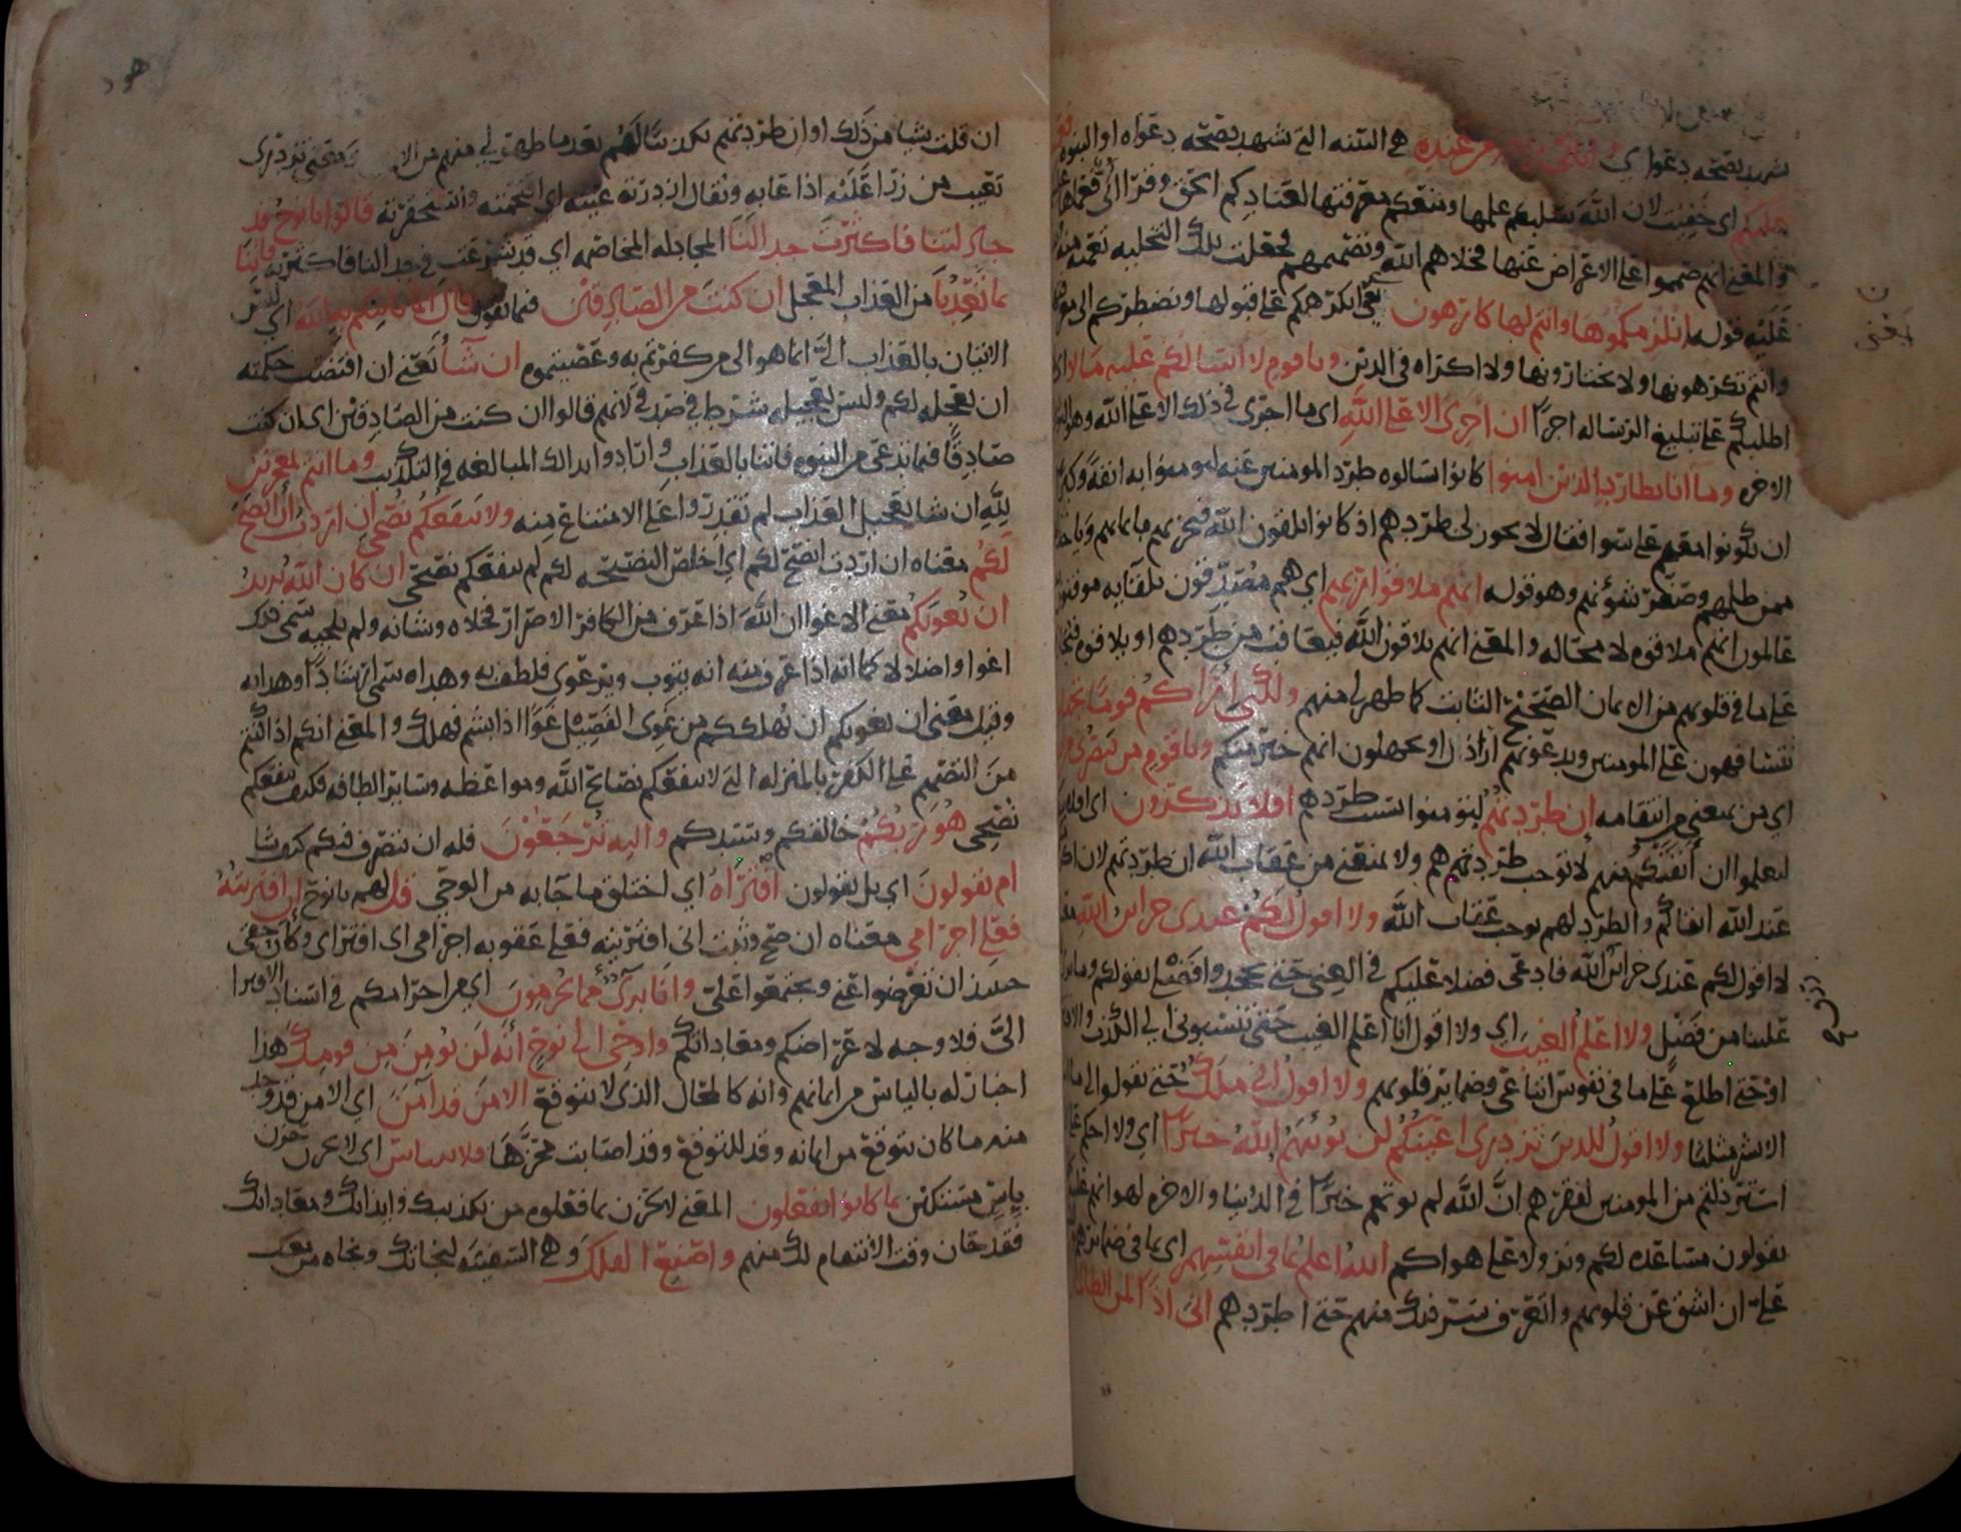 شهد بصحه دعواي من عنده هي البينه التي شهد بصحه دعواه او النبوه
عليكم اي خفيت لان الله سلبكم علمها ومنعكم معرفتها لعنادكم الحق
والمعني انهم صمموا على الاعراض عنها فخلاهم الله وتصميمهم فجعلت تلك التخليه تعميه منه
عليه قوله انلزمكموها وانتم لها كارهون يعني انكرهكم على قبولها ونضطركم الى
وانتم تكرهونها ولا تختارونها ولا اكراه في الدين ويا قوم لا اسالكم عليه مالا اي
اطلبكم على تبليغ الرساله اجرا ان اجري الا على الله اي ما اجري في ذلك الا على الله وهو
الاخره وما انا بطارد الذين امنوا كانوا سالوه طرد المومنين عنه ليومنوا به انفه
ان يكونوا معهم على سوا فقال لا يجوز لي طردهم اذ كانوا يلقون الله فيجزيهم بايمانهم
ممن ظلمهم وصغر شونهم وهو قوله انهم ملاقوا ربهم اي هم مصدقون بلقايه موقنون
عالمون انهم ملاقوه لا محاله والمعني انهم يلاقون الله فيعاقب من طردهم او يلاقوه
على ما في قلوبهم من الايمان الصحيح الثابت كما ظهر لي منهم ولكني اراكم قوما تجهلون
تتسافهون على المومنين وتدعونهم اراذل او تجهلون انهم خير منكم ويا قوم من ينصرني من
اي من يمنعني من انتقامه ان طردتهم ليومنوا بسبب طردهم افلا تذكرون اي
لتعلموا ان انفتكم منهم لا توجب طردتهم هم ولا يمنعني من عقاب الله ان طردتهم لان
عند الله اتقاكم والطرد لهم يوجب عقاب الله ولا اقول لكم عندي خزاين الله
لا اقول لكم عندي خزاين الله فادعي فضلا عليكم في الغني حتي تجحدوا فضلي بقولكم وما نرى
علينا من فضل ولا اعلم الغيب اي ولا اقول انا اعلم الغيب حتي تنسبوني الي الكذب
او حتي اطلع على ما في نفوس اتباعي وضماير قلوبهم ولا اقول اني ملك حتي تقولوا لي ما
الا بشر مثلنا ولا اقول للذين تزدري اعينكم لن يوتيهم الله خيرا اي ولا احكم على
استرذلتم من المومنين لفقرهم ان الله لم يوتهم خيرا في الدنيا والاخره لهوانهم عليه
تقولون مساعده لكم ونزولا على هواكم الله اعلم بما في انفسهم اي بما في ضمايرهم
علي ان اشق عن قلوبهم واتعرف سر ذلك منهم حتي اطردهم اني اذا لمن الظالمين
يعني
هود
ان قلت شيا من ذلك او ان طردتهم بعد ما ظهر لي منهم من معني تزدري
تعيب من زرا عليه اذا عابه ويقال ازدرته عينه اي اقتحمته واستحقرته قالوا يا نوح قد
جادلتنا فاكثرت جدالنا المجادله المخاصمه اي قد شرعت في جدالنا فاكثرته فاتنا
بما تعدنا من العذاب المعجل ان كنت من الصادقين فيما تقول قال انما ياتيكم به الله اي ليس
الاتيان بالعذاب الي انما هو الى من كفرتم به وعصيتموه ان شا يعني ان اقتضت حكمته
ان يعجله لكم وليس تعجيله شرطا في صدقي لانهم قالوا ان كنت من الصادقين اي ان كنت
صادقا فيما تدعي من النبوه فاتنا بالعذاب وارادوا بذلك المبالغه في التكذيب وما انتم بمعجزين
لله ان شا تعجيل العذاب لم تقدروا على الامتناع منه ولا ينفعكم نصحي ان اردت ان انصح
لكم معناه ان اردت انصح لكم اي اخلص النصيحه لكم لم ينفعكم نصحي ان كان الله يريد
ان يغويكم معني الاغوا ان الله اذا عرف من الكافر الاصرار فخلاه وشانه ولم يلجيه سمى ذلك
اغوا واضلالا كما انه اذا عرف منه انه يتوب ويرعوي فلطف به وهداه سمى ارشادا وهدايه
وقيل معنى ان يغويكم ان يهلككم من غوى الفصيل غوا اذا بشم فهلك والمعني انكم اذا كنتم
من التصميم على الكفر بالمنزله التي لا ينفعكم نصايح الله ومواعظه وساير الطافه فكيف ينفعكم
نصحي هو ربكم خالقكم وسيدكم واليه ترجعون فله ان يتصرف فيكم كيف شا
ام يقولون اي بل يقولون افتراه اي اختلق ما جا به من الوحي قل لهم يا نوح ان افتريته
فعلي اجرامي معناه ان صح وثبت اني افتريته فعلي عقوبه اجرامي اي افتراي وكان حقي
حينئذ ان تعرضوا عني وتجتمعوا علي وانا بري مما تجرمون اي من اجرامكم في اسناد الافترا
الي فلا وجه لاعراضكم ومعاداتكم واوحي الي نوح انه لن يومن من قومك هذا
اخبار له بالياس من ايمانهم وانه كالمحال الذي لا يتوقع الا من قد آمن اي الا من قد وجد
منه ما كان يتوقع من ايمانه وقد للتوقع وقد اصابت محزها فلا تبتئس اي لا تحزن حزن
بايس مستكين بما كانوا يفعلون المعني لا تحزن بما فعلوه من تكذيبك وايذايك ومعاداتك
فقد حان وقت الانتقام لك منهم واصنع الفلك وهي السفينه لنجاتك ونجاه من معك